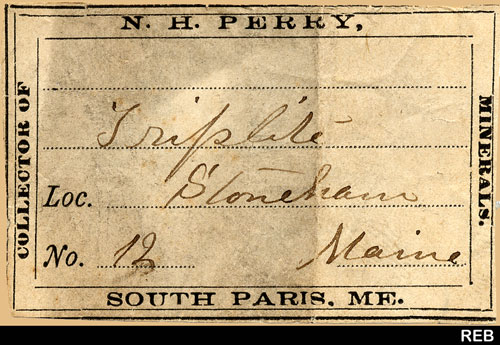 N. H. PERRY,
COLLECTOR OF
MINERALS.
Triplite
Loc. Stoneham
No. 12 Maine
SOUTH PARIS, ME.
REB